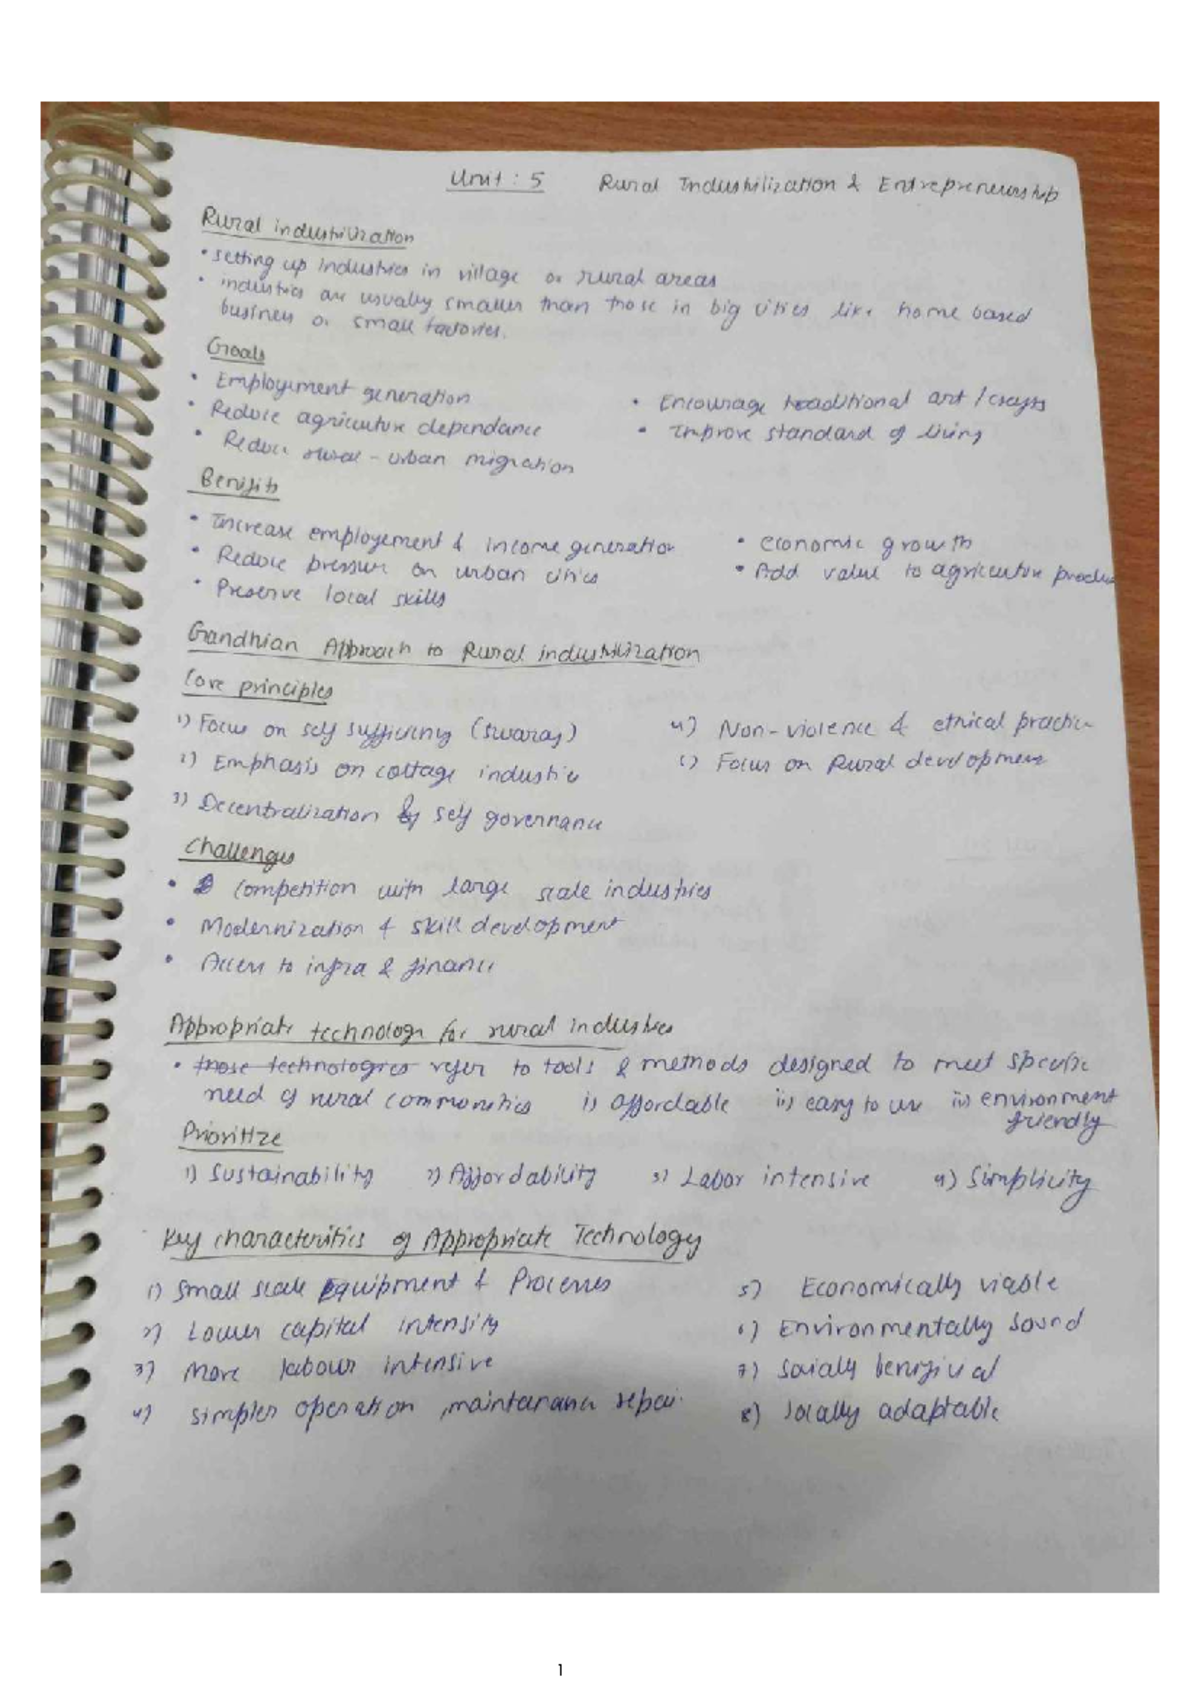 Unit : 5 Rural Industrilization & Entrepreneurship
Rural industrilization
• setting up industries in village or rural areas
• industries are usually smaller than those in big cities like home based
business or small factories.
Goals
• Employement generation
• Encourage traditional art / crafts
• Reduce agriculture dependance
• Improve standard of living
• Reduce rural - urban migration
Benifits
• Increase employement & income generation
• economic growth
• Reduce pressure on urban cities
• Add value to agriculture produc
• Preserve local skills
Gandhian Approach to Rural industrilization
Core principles
1) Focus on self sufficing (swaraj)
4) Non-violence & ethical practice
2) Emphasis on cottage industrie
5) Focus on Rural development
3) Decentralization & self governance
Challenges
• Competition with large scale industries
• Modernization & skill development
• Access to infra & finance
Appropriate technology for rural industries
• those technologies refer to tools & methods designed to meet specific
need of rural communities i) affordable ii) easy to use iii) environment
friendly
Prioritize
1) Sustainability 2) Affordability 3) Labor intensive 4) Simplicity
Key characteristics of Appropriate Technology
1) Small scale Equipment & Processes
5) Economically viable
2) Lower capital intensity
6) Environmentally Sound
3) More labour intensive
7) Socially benificial
4) simpler operation, maintanance repair
8) locally adaptable
1